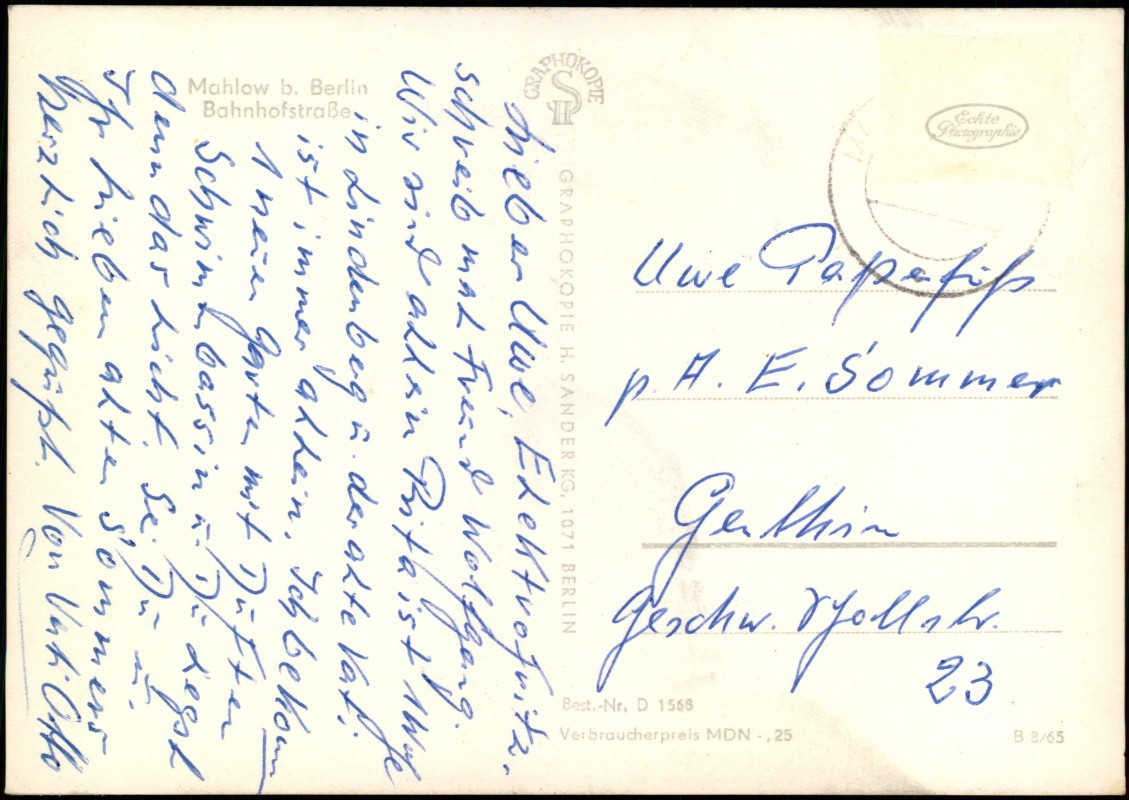 Mahlow b. Berlin
Bahnhofstraße
GRAPHOKOPIE
H S
GRAPHOKOPIE H. SANDER KG, 1071 BERLIN
Echte
Photographie
Lieber Uwe, Elektrofritz.
schreib mit Freund Wolfgang.
Wir sind allein Rita ist
in Lindenberg u. der alte Vati
ist immer allein. Ich bekomm
1 neuen Garten mit Duften
Schwimmbassin u. Du liegst
denn das nicht. Sei Du u.
Ihr lieben alten Sommers
herzlich gegrüßt. Von Vati Otto
Uwe
p. A. E. Sommer
Genthin
Geschw. Scholl str.
23
Best.-Nr. D 1568
Verbraucherpreis MDN -,25
B 8/65